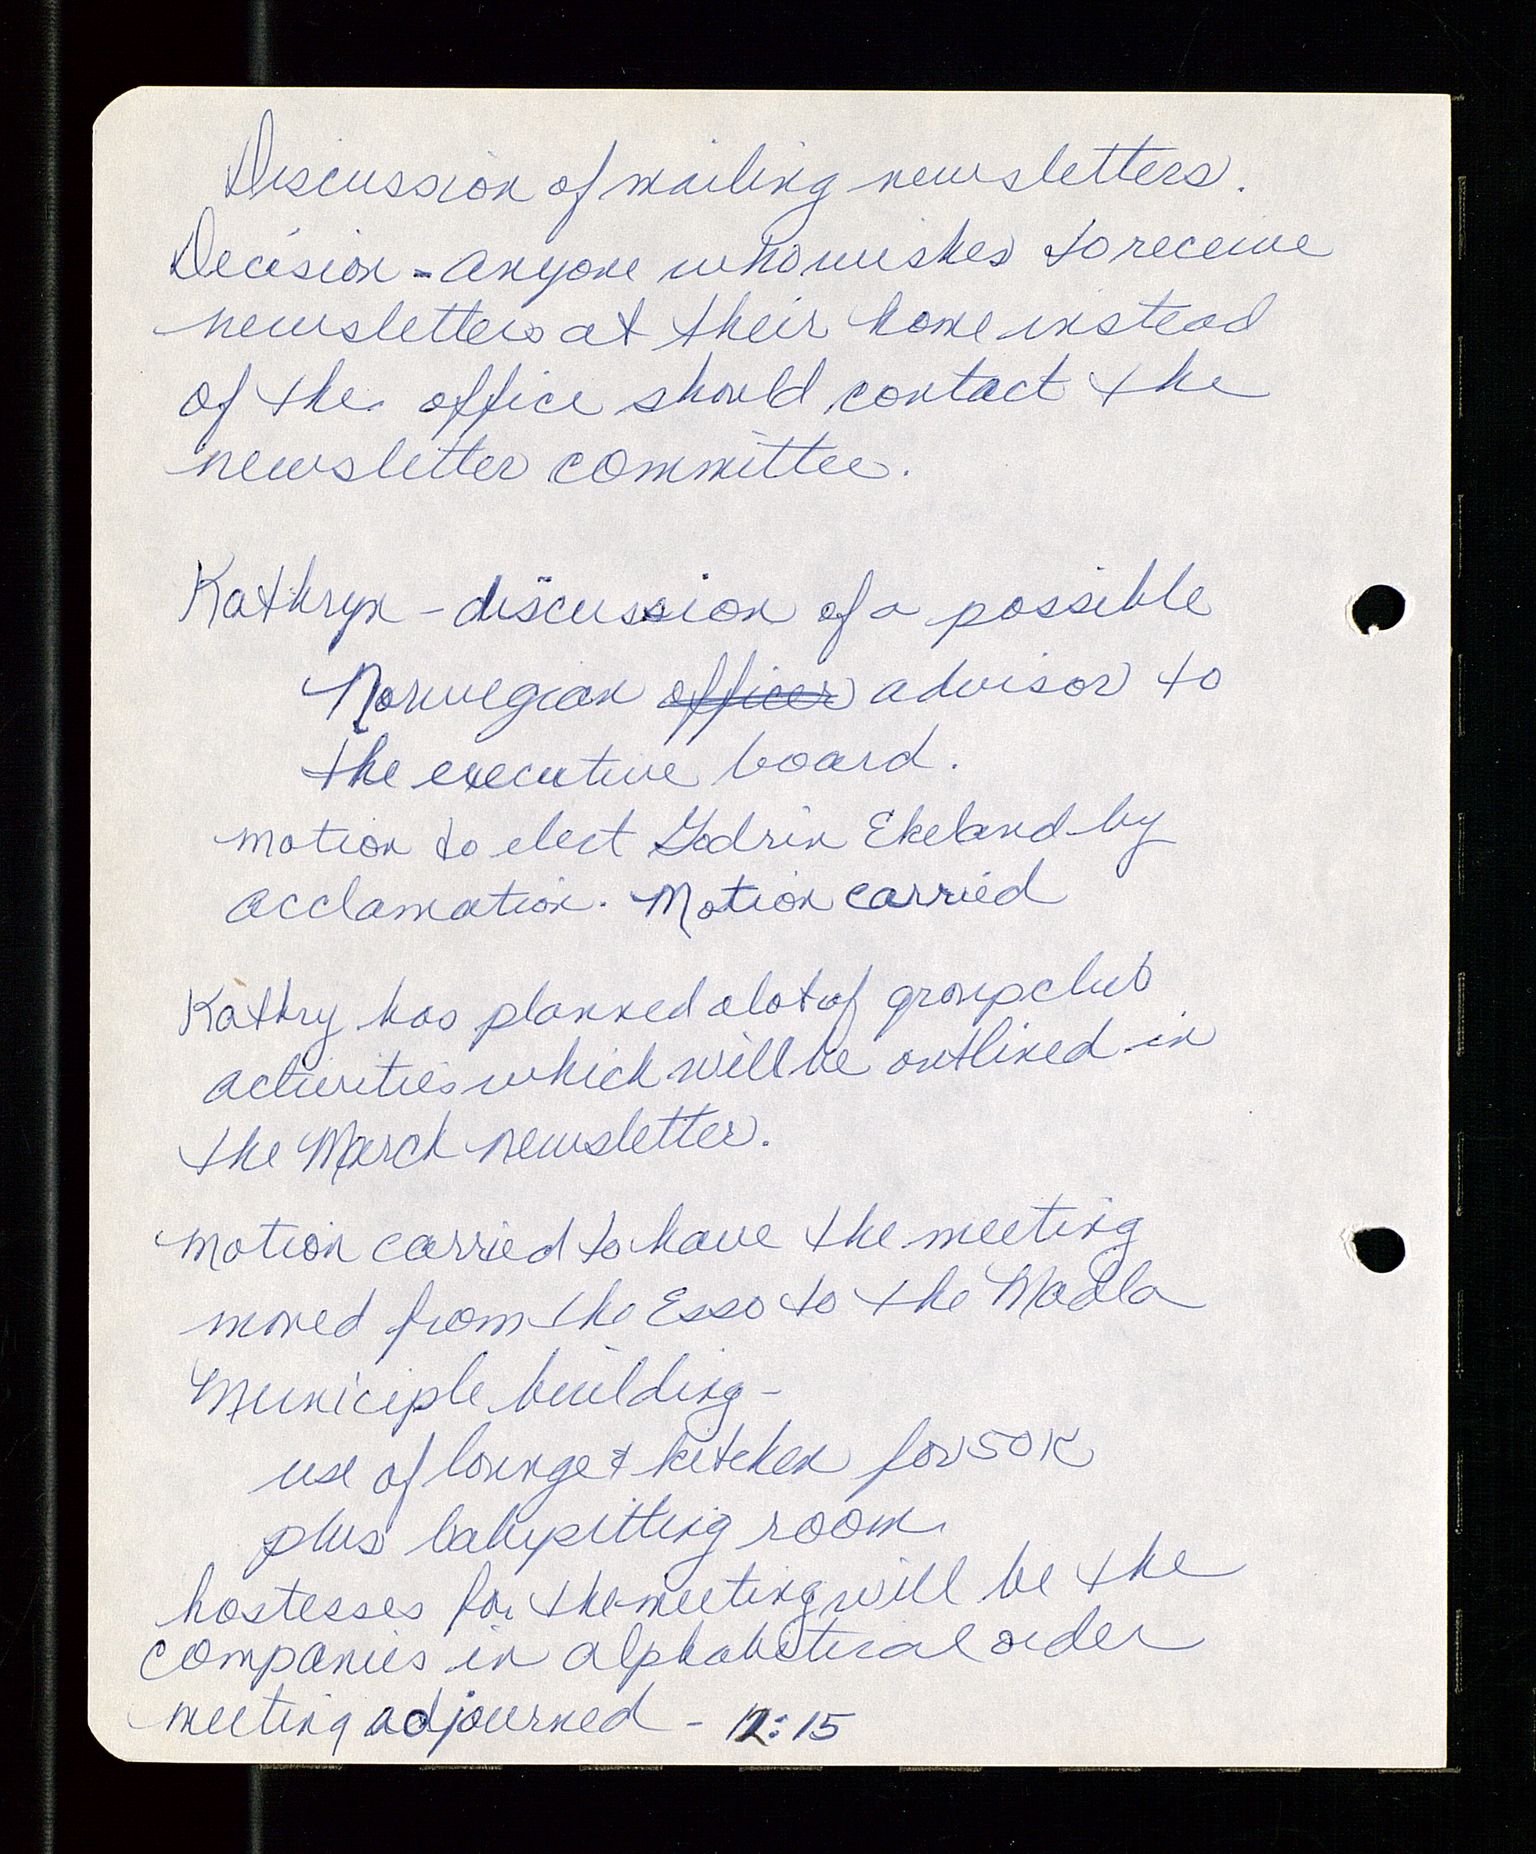 Discussion of mailing newsletters.
Decision - anyone who wishes to receive
newsletters at their home instead
of the office should contact the
newsletter committee.
Kathryn - discussion of a possible
Norwegian officer advisor to
the executive board.
motion to elect Godrin Ekeland by
acclamation. Motion carried
Kathry has planned a lot of group club
activities which will be outlined in
the March newsletter.
motion carried to have the meeting
moved from the Esso to the Madla
Municiple building -
use of lounge & kitchen for 50 K
plus babysitting room.
hostesses for the meeting will be the
companies in alphabetical order
meeting adjourned - 12:15